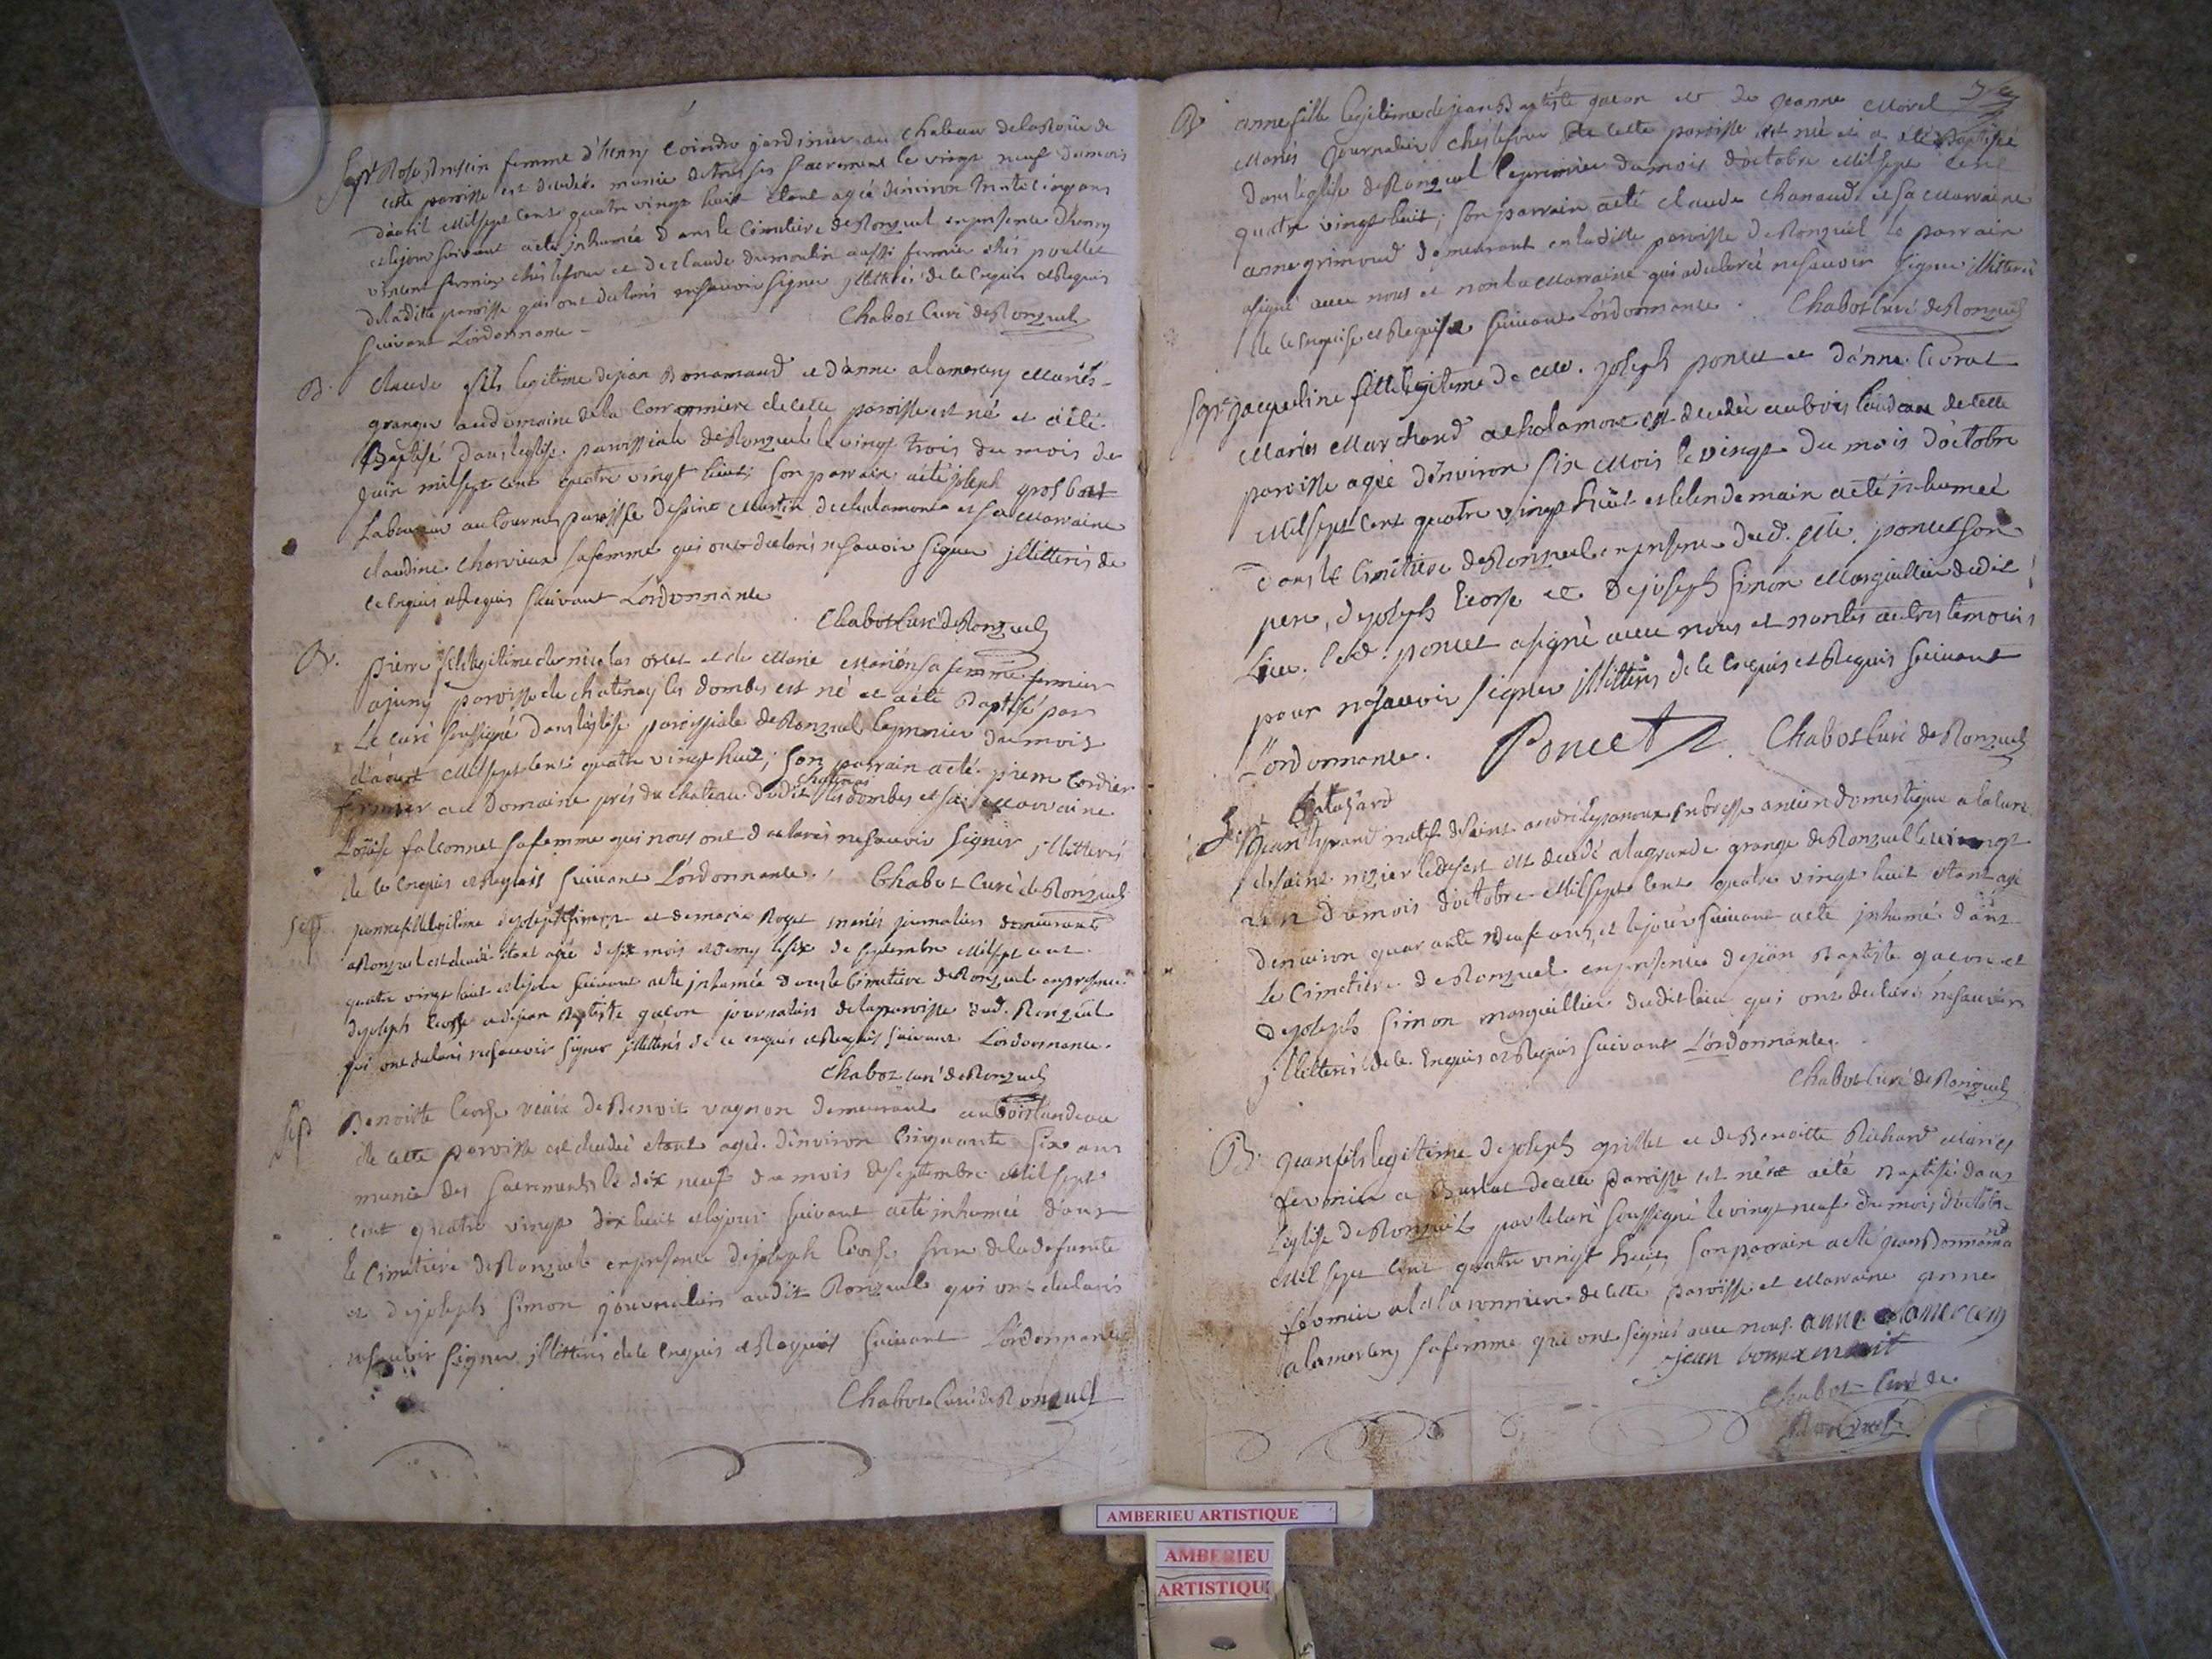 Sept Rose femme d'henry Coindre jardinier au chateau de la Roüe de
cette paroisse est decedée munie de tous ses sacrements le vingt neuf du mois
d'avril mil sept cent quatre vingt huit étant agée d'environ trente cinq ans
et le jour suivant a été inhumée dans le cimetiere de Ronzuel en presence d'henry
vincent fermier chés lefour et de claude dumoulin aussi fermier chés poullet
de la ditte paroisse qui ont declarés ne sçavoir signer illitterés de ce enquis et Requis
suivant L'ordonnance - Chabot Curé de Ronzuel
B. Claude fils legitime de jean Bonamand et d'anne alamercery mariés
granger au domaine de la de cette paroisse est né et a été
Baptisé dans l'eglise paroissiale de Ronzuel le vingt trois du mois de
juin mil sept cent quatre vingt huit; son parrain a été joseph grosbost
Laboureur au tournus paroisse de saint martin de chalamont et sa marraine
claudine charvieux sa femme qui ont declaré ne sçavoir signer jllitterés de
ce enquis et Requis suivant L'ordonnance
Chabot Curé de Ronzuel
B. pierre fils legitime de nicolas et de marie sa femme fermier
a juny paroisse de chatenay les dombes est né et a été Baptisé par
Le curé soussigné dans l'eglise paroissiale de Ronzuel le premier du mois
d'aout mil sept cent quatre vingt huit; son parrain a été pierre Cordier
chatenay
fermier au Domaine prés du chateau dudit les dombes et sa marraine
Loüise falconnet sa femme qui nous ont declarés ne sçavoir signer jllitterés
de ce enquis et Requis suivant L'ordonnance. Chabot Curé de Ronzuel
Sep. jeanne fille legitime de joseph simon et de marie Roget mariés journaliers demeurants
a Ronzuel est decedé étant agé de six mois et demy le six de septembre mil sept cent
quatre vingt huit et le jour suivant a été inhumée dans le Cimetiere de Ronzuel en presence
de joseph Ecosse et de jean Baptiste gacon journaliers de la paroisse dud. Ronzuel
qui ont declarés ne sçavoir signer jllitterés de ce enquis et Requis suivant L'ordonnance.
Chabot curé de Ronzuel
Sep Benoitte Ecosse veuve de Benoit vagnon demeurante au bois landeau
de cette paroisse est decedée étant agée d'environ Cinquante six ans
munie des sacrements le dix neuf du mois de septembre mil sept
cent quatre vingt dix huit et le jour suivant a été inhumée dans
le Cimetiere de Ronzuel en presence de joseph Ecosse frere de la defunte
et de joseph simon journaliers audit Ronzuel qui ont declarés
ne sçavoir signer jllitterés de ce enquis et Requis suivant L'ordonnance
Chabot Curé de Ronzuel
B. anne fille legitime de jean Baptiste gacon et de jeanne morel
mariés journalier chés lefour de cette paroisse est né et a été Baptisée
dans l'eglise de Ronzuel le premier du mois d'octobre mil sept cent
quatre vingt huit; son parrain a été claude chanaud et sa marraine
anne grimoud demeurant en la ditte paroisse de Ronzuel le parrain
a signé avec nous et non la marraine qui a declarée ne sçavoir signer illitterée
de ce enquise et Requise suivant L'ordonnance. Chabot Curé de Ronzuel
Sept jacqueline fille legitime de mr. joseph poncet et d'anne livrat
mariés marchand a chalamont est decedée au bois landeau de cette
paroisse agée d'environ six mois le vingt du mois d'octobre
mil sept cent quatre vingt huit et le lendemain a été inhumée
dans le Cimetiere de Ronzuel en presence dud. Mr. poncet son
pere, de joseph Ecosse et de joseph simon marguillier dudit
Lieu. Led. poncet a signé avec nous et non les autres temoins
pour ne sçavoir signer jllitterés de ce enquis et Requis suivant
L'ordonnance. Poncet Chabot Curé de Ronzuel
Jean natif de saint andré en bresse ancien domestique a la cure
de saint nizier le desert est decedé a la grande grange de Ronzuel le vingt
du mois d'octobre mil sept cent quatre vingt huit étant agé
d'environ quarante neuf ans, et le jour suivant a été inhumé dans
Le Cimetiere de Ronzuel en presence de jean Baptiste gacon et
de joseph simon marguillier dudit lieu qui ont declarés ne sçavoir
jllitterés de ce Enquis et Requis suivant L'ordonnance.
Chabot Curé de Ronzuel
B. jean fils legitime de joseph grillet et de Benoitte Richard mariés
fermier a de cette paroisse est né et a été Baptisé dans
L'eglise de Ronzuel par le curé soussigné le vingt neuf du mois d'octobre
mil sept cent quatre vingt huit, son parrain a été jean Bonnamand
fermier a la de cette paroisse et marraine anne
alamercery sa femme qui ont signés avec nous. anne alamercery
jean bonnamant
Chabot Curé de
Ronzuel
AMBERIEU ARTISTIQUE
AMBERIEU
ARTISTIQUE